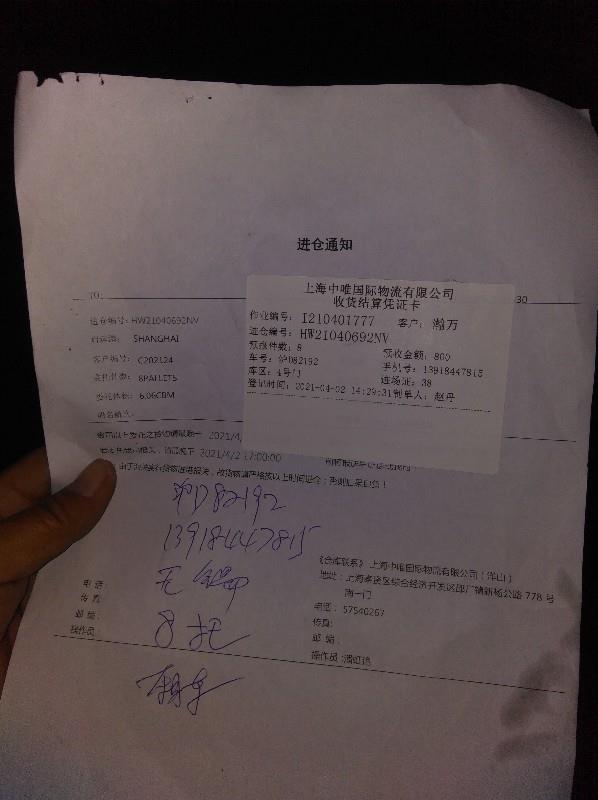 进仓通知
TO:
30
上海中唯国际物流有限公司
收货结算凭证卡
作业编号: I210401777 客户: 瀚万
进仓编号: HW21040692NV
预报件数: 8 预收金额: 800
车号: 沪D82192 手机号: 13918447815
库区: 4号门 进场证: 38
登记时间: 2021-04-02 14:29:31 制单人: 赵丹
进仓编号: HW21040692NV
SHANGHAI
客户编号: C202124
委托件数: 8PALLETS
委托体积: 6.06CBM
2021/4/
2021/4/2 17:00:00
沪D82192
13918447815
无
8托
电 话:
传 真:
邮 编:
操作员:
《仓库联系》 上海中唯国际物流有限公司 (洋山)
地址: 上海奉贤区综合经济开发区邵厂镇新杨公路 778 号
南一门
电话: 57540267
传真:
邮 编:
操作员: